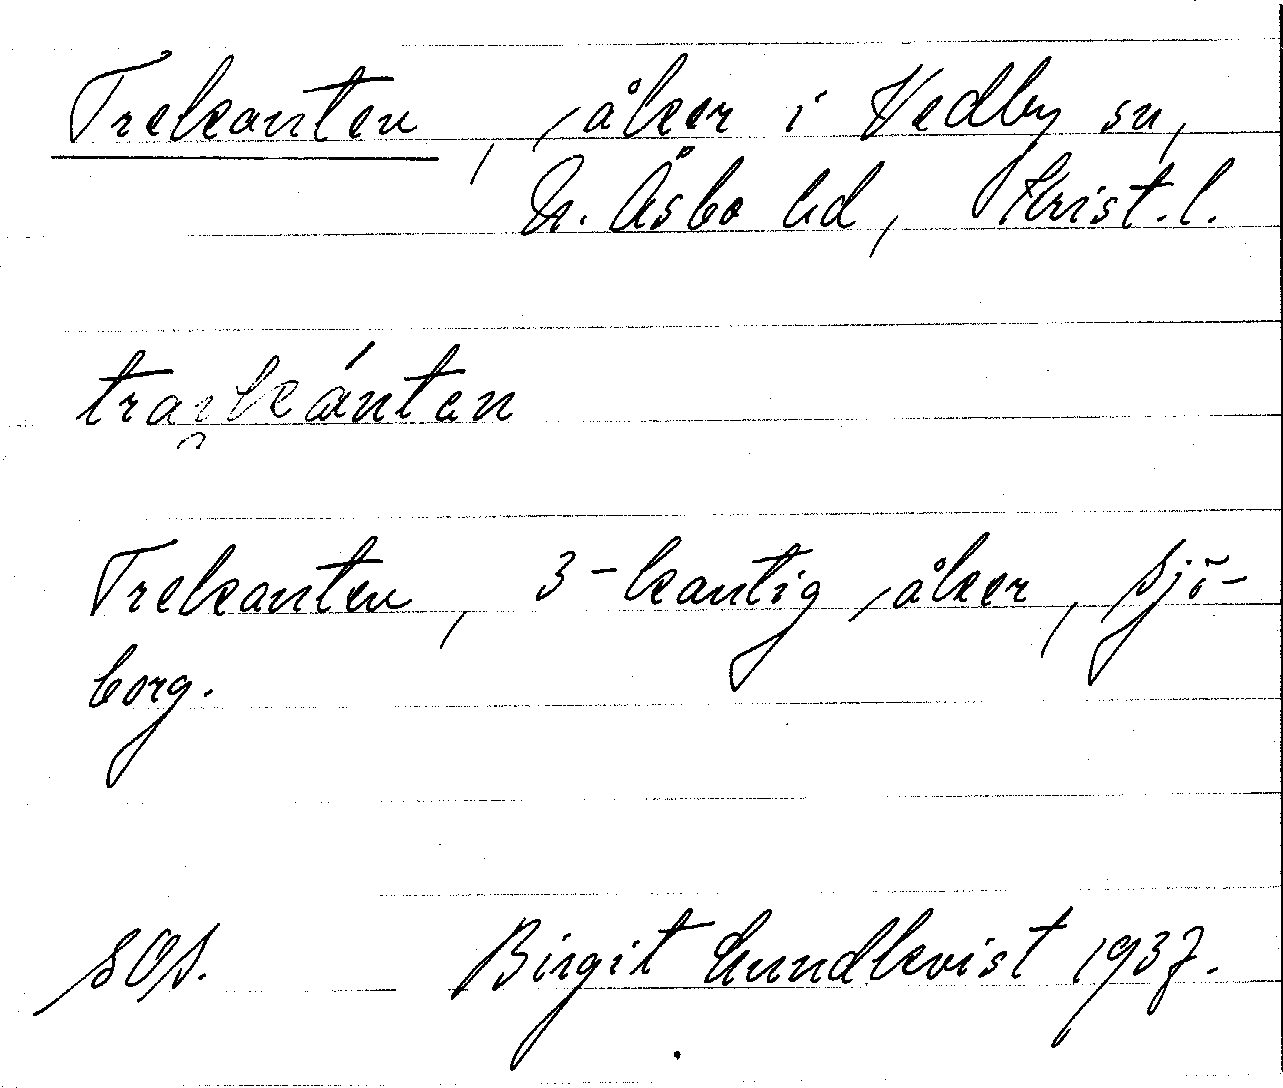 Trekanten, åker i Vedby sn,
N. Åsbo hd, Krist. l.
trai̯kánten
Trekanten, 3-kantig åker, Sjö-
borg.
SOS. Birgit Lundkvist 1937.